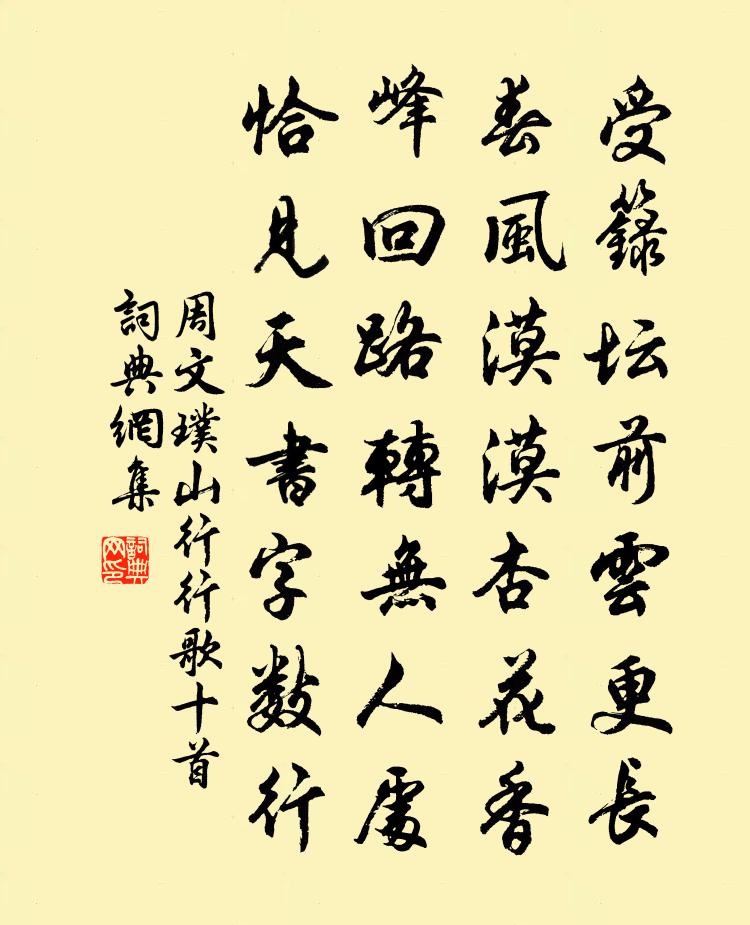 受籙坛前雲更長
春風漠漠杏花香
峰回路轉無人處
恰見天書字数行
周文璞山行行歌十首
詞典網集
詞典網印